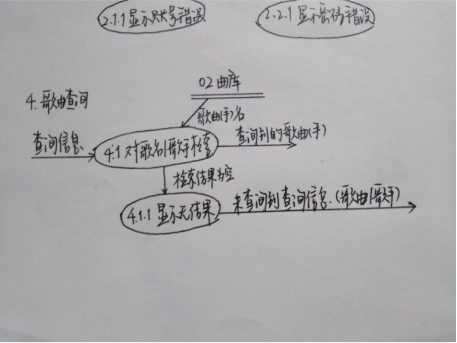 2.1.1 显示账号错误
2.2.1 显示密码错误
02 曲库
4. 歌曲查询
歌曲(手)名
查询信息
4.1 对歌名/歌手检索
查询到的歌曲(手)
检索结果为空
4.1.1 显示无结果
未查询到查询信息.(歌曲/歌手)